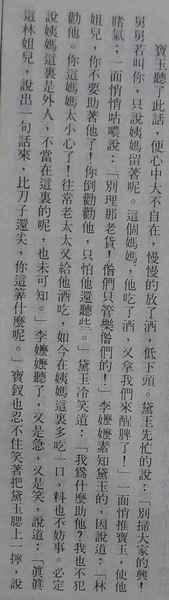 寶玉聽了此話，便心中大不自在，慢慢的放了酒，低下頭。黛玉先忙的說：「別掃大家的興！
舅舅若叫你，只說姨媽留著呢。這個媽媽，他吃了酒，又拿我們來醒脾了！」一面悄推寶玉，使他
賭氣；一面悄悄咕噥說：「別理那老貨！偺們只管樂偺們的！」李嬤嬤素知黛玉的，因說道：「林
姐兒，你不要助著他了！你倒勸勸他，只怕他還聽些。」黛玉冷笑道：「我爲什麼助他？我也不犯
勸他。你這媽媽太小心了！往常老太太又給他酒吃，如今在姨媽這裏多吃一口，料也不妨事。必定
說姨媽這裏是外人，不當在這裏的呢，也未可知。」李嬤嬤聽了，又是急，又是笑，說道：「眞眞
這林姐兒，說出一句話來，比刀子還尖，你這算什麼呢。」寶釵也忍不住笑著把黛玉腮上一擰，說